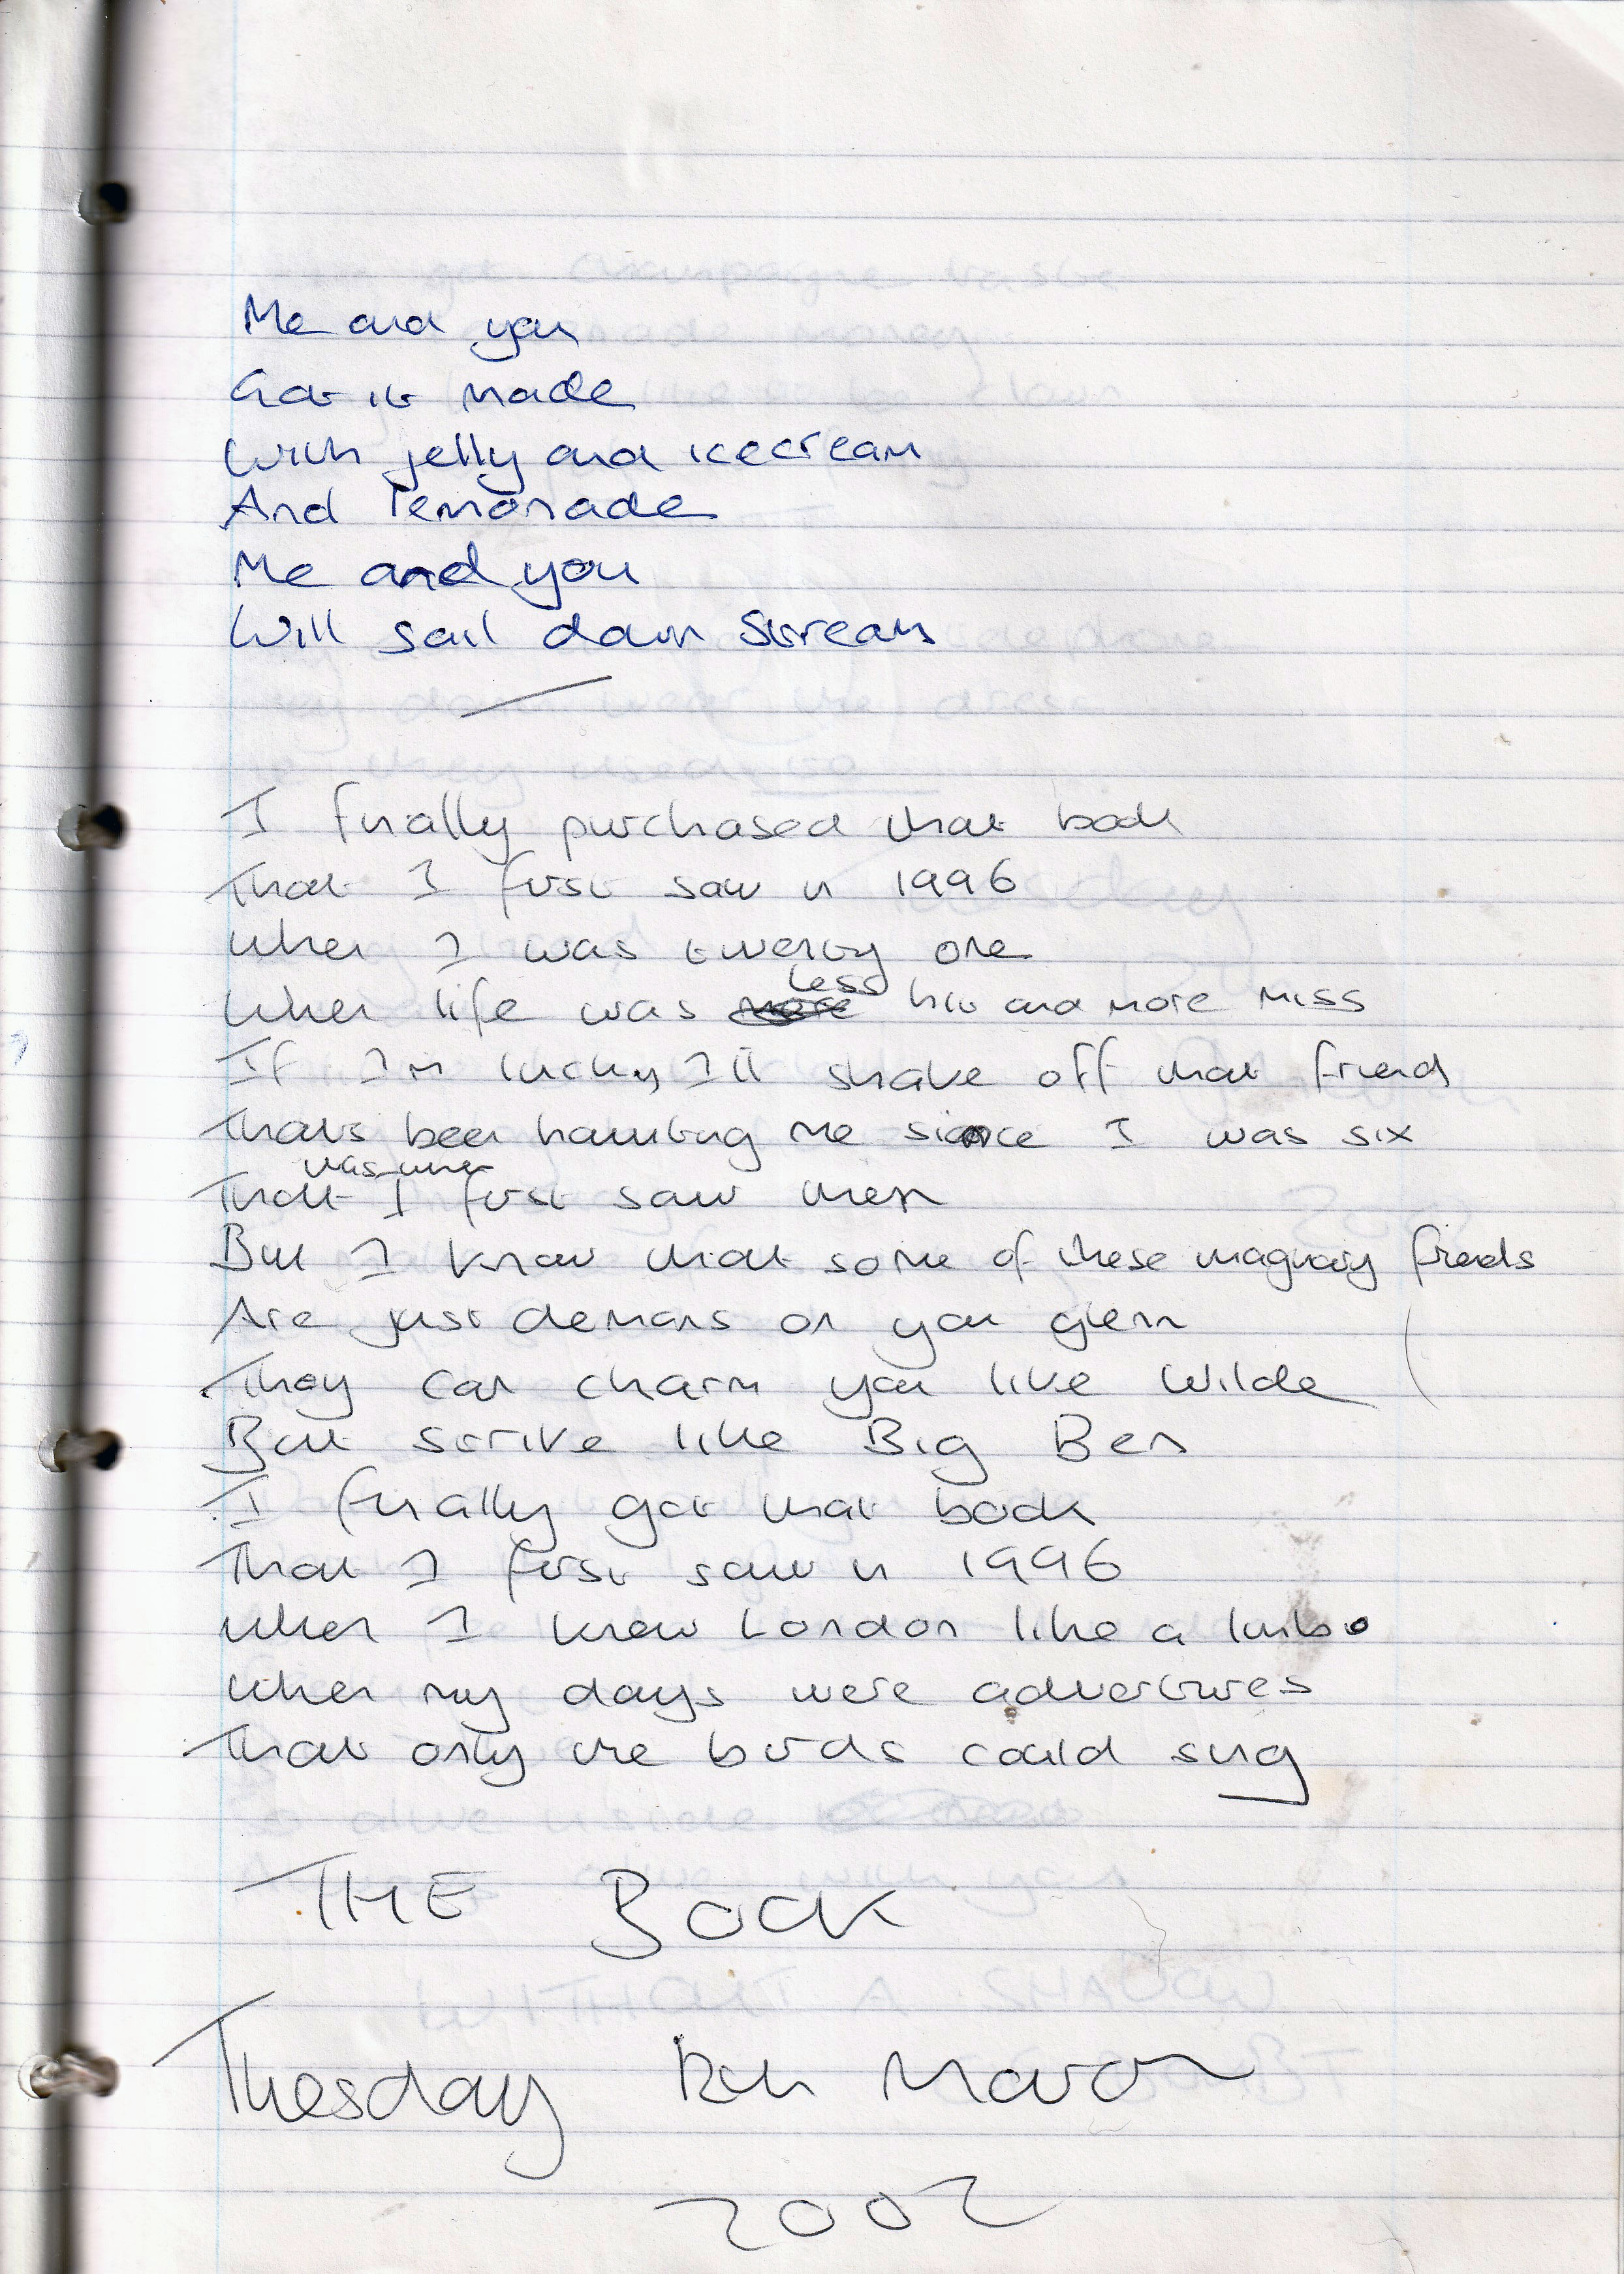 Me and you
Got it made
With jelly and icecream
And lemonade
Me and you
Will sail down stream
I finally purchased that book
That I first saw in 1996
When I was twenty one
less
When life was more hit and more miss
If I'm lucky I'll shake off that friend
Thats been haunting me since I was six
was when
That I first saw them
But I know that some of these imaginary friends
Are just demons on you
They can charm you like Wilde
But strike like Big Ben
I finally got that book
That I first saw in 1996
When I knew London like a limb
When my days were adventures
That only the birds could sing
THE BOOK
Tuesday 12th March
2002